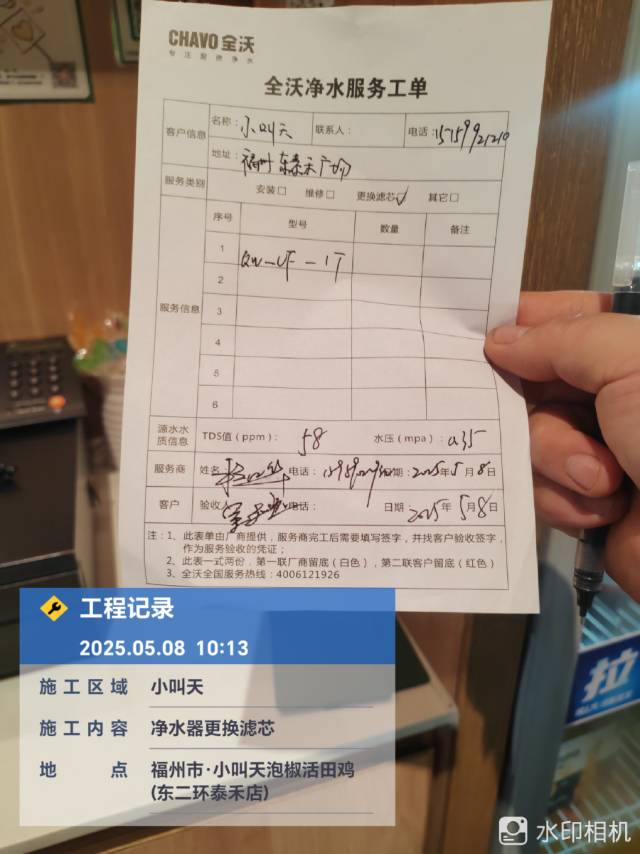 CHAVO 全沃
专注厨房净水
全沃净水服务工单
客户信息
名称：小叫天 联系人： 电话：15159921210
地址：福州东泰禾广场
服务类别 安装□ 维修□ 更换滤芯☑ 其它□
服务信息
序号 型号 数量 备注
1 QW-UF-1T
2
3
4
5
6
源水水质信息 TDS值（ppm）：58 水压（mpa）：0.35
服务商 姓名 电话： 日期：2025年5月8日
客户 验收人 电话： 日期 2025年5月8日
注：1、此表单由厂商提供，服务商完工后需要填写签字，并找客户验收签字，
作为服务验收的凭证；
2、此表一式两份，第一联厂商留底（白色），第二联客户留底（红色）
3、全沃全国服务热线：4006121926
工程记录
2025.05.08 10:13
施工区域 小叫天
施工内容 净水器更换滤芯
地点 福州市·小叫天泡椒活田鸡
(东二环泰禾店)
拉
水印相机